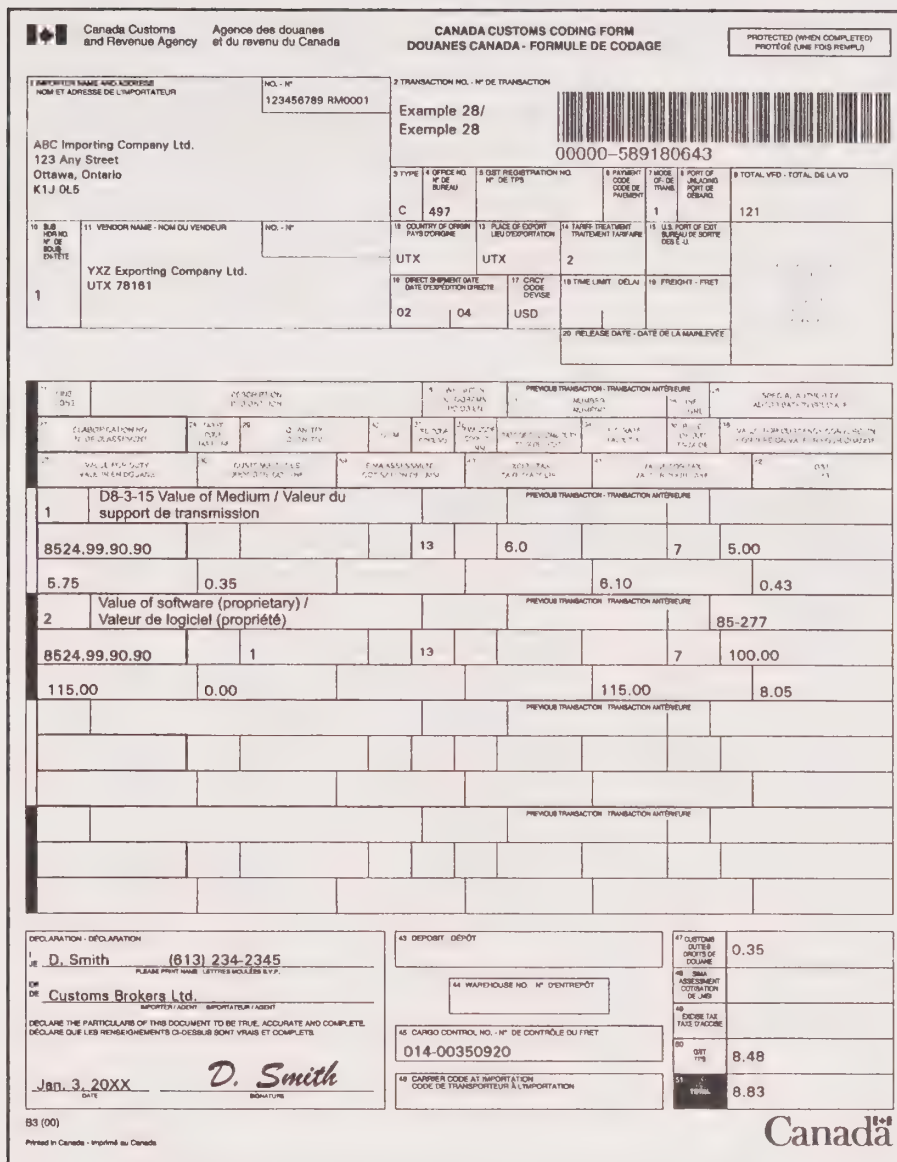 Canada Customs and Revenue Agency
Agence des douanes et du revenu du Canada
CANADA CUSTOMS CODING FORM
DOUANES CANADA - FORMULE DE CODAGE
PROTECTED (WHEN COMPLETED)
PROTÉGÉ (UNE FOIS REMPLI)
1 IMPORTER NAME AND ADDRESS
NOM ET ADRESSE DE L'IMPORTATEUR
NO. - Nº
123456789 RM0001
ABC Importing Company Ltd.
123 Any Street
Ottawa, Ontario
K1J 0L5
2 TRANSACTION NO. - Nº DE TRANSACTION
Example 28/
Exemple 28
00000-589180643
3 TYPE
C
4 OFFICE NO.
Nº DE BUREAU
497
5 GST REGISTRATION NO.
Nº DE TPS
6 PAYMENT CODE
CODE DE PAIEMENT
7 MODE OF - DE TRANS.
1
8 PORT OF UNLADING
PORT DE DÉBARQ.
9 TOTAL VFD - TOTAL DE LA VD
121
10 SUB HDR NO.
Nº DE SOUS EN-TÊTE
1
11 VENDOR NAME - NOM DU VENDEUR
NO. - Nº
YXZ Exporting Company Ltd.
UTX 78161
12 COUNTRY OF ORIGIN
PAYS D'ORIGINE
UTX
13 PLACE OF EXPORT
LIEU D'EXPORTATION
UTX
14 TARIFF TREATMENT
TRAITEMENT TARIFAIRE
2
15 U.S. PORT OF EXIT
BUREAU DE SORTIE DES É.-U.
16 DIRECT SHIPMENT DATE
DATE D'EXPÉDITION DIRECTE
02 04
17 CRCY CODE
DEVISE
USD
18 TIME LIMIT DÉLAI
19 FREIGHT - FRET
20 RELEASE DATE - DATE DE LA MAINLEVÉE
PREVIOUS TRANSACTION - TRANSACTION ANTÉRIEURE
1 D8-3-15 Value of Medium / Valeur du
support de transmission
PREVIOUS TRANSACTION - TRANSACTION ANTÉRIEURE
8524.99.90.90 13 6.0 7 5.00
5.75 0.35 6.10 0.43
2 Value of software (proprietary) /
Valeur de logiciel (propriété)
PREVIOUS TRANSACTION - TRANSACTION ANTÉRIEURE
85-277
8524.99.90.90 1 13 7 100.00
115.00 0.00 115.00 8.05
PREVIOUS TRANSACTION - TRANSACTION ANTÉRIEURE
PREVIOUS TRANSACTION - TRANSACTION ANTÉRIEURE
DECLARATION - DÉCLARATION
I
JE D. Smith (613) 234-2345
PLEASE PRINT NAME LETTRES MOULÉES S.V.P.
OF
DE Customs Brokers Ltd.
IMPORTER / AGENT IMPORTATEUR / AGENT
DECLARE THE PARTICULARS OF THIS DOCUMENT TO BE TRUE, ACCURATE AND COMPLETE.
DÉCLARE QUE LES RENSEIGNEMENTS CI-DESSUS SONT VRAIS ET COMPLETS.
Jan. 3, 20XX D. Smith
DATE SIGNATURE
43 DEPOSIT DÉPÔT
44 WAREHOUSE NO. Nº D'ENTREPÔT
45 CARGO CONTROL NO. - Nº DE CONTRÔLE DU FRET
014-00350920
46 CARRIER CODE AT IMPORTATION
CODE DE TRANSPORTEUR À L'IMPORTATION
47 CUSTOMS DUTIES
DROITS DE DOUANE
0.35
48 SIMA ASSESSMENT
COTISATION DE LMSI
49 EXCISE TAX
TAXE D'ACCISE
50 GST
TPS
8.48
51 TOTAL
8.83
B3 (00)
Printed in Canada - Imprimé au Canada
Canada